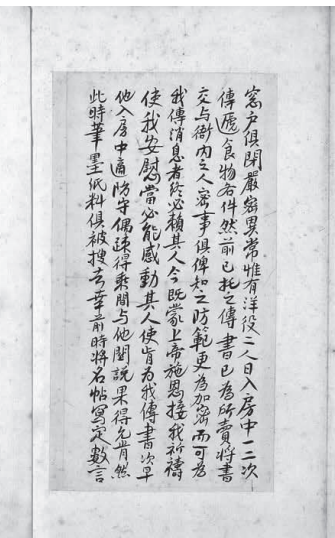 窓户俱閉嚴密異常惟有洋役二人日入房中一二次
傳遞食物各件然前已托之傳書已為所賣將書
交与衙内之人密事俱俾知之防範更為加密而可為
我傳消息者終必賴其人今既蒙上帝施恩接我祈禱
使我安慰當必能感動其人使肯為我傳書次早
他入房中適防守偶疎得乘間与他關說果得允肯然
此時筆墨紙料俱被搜去幸前時將名帖寫定數言